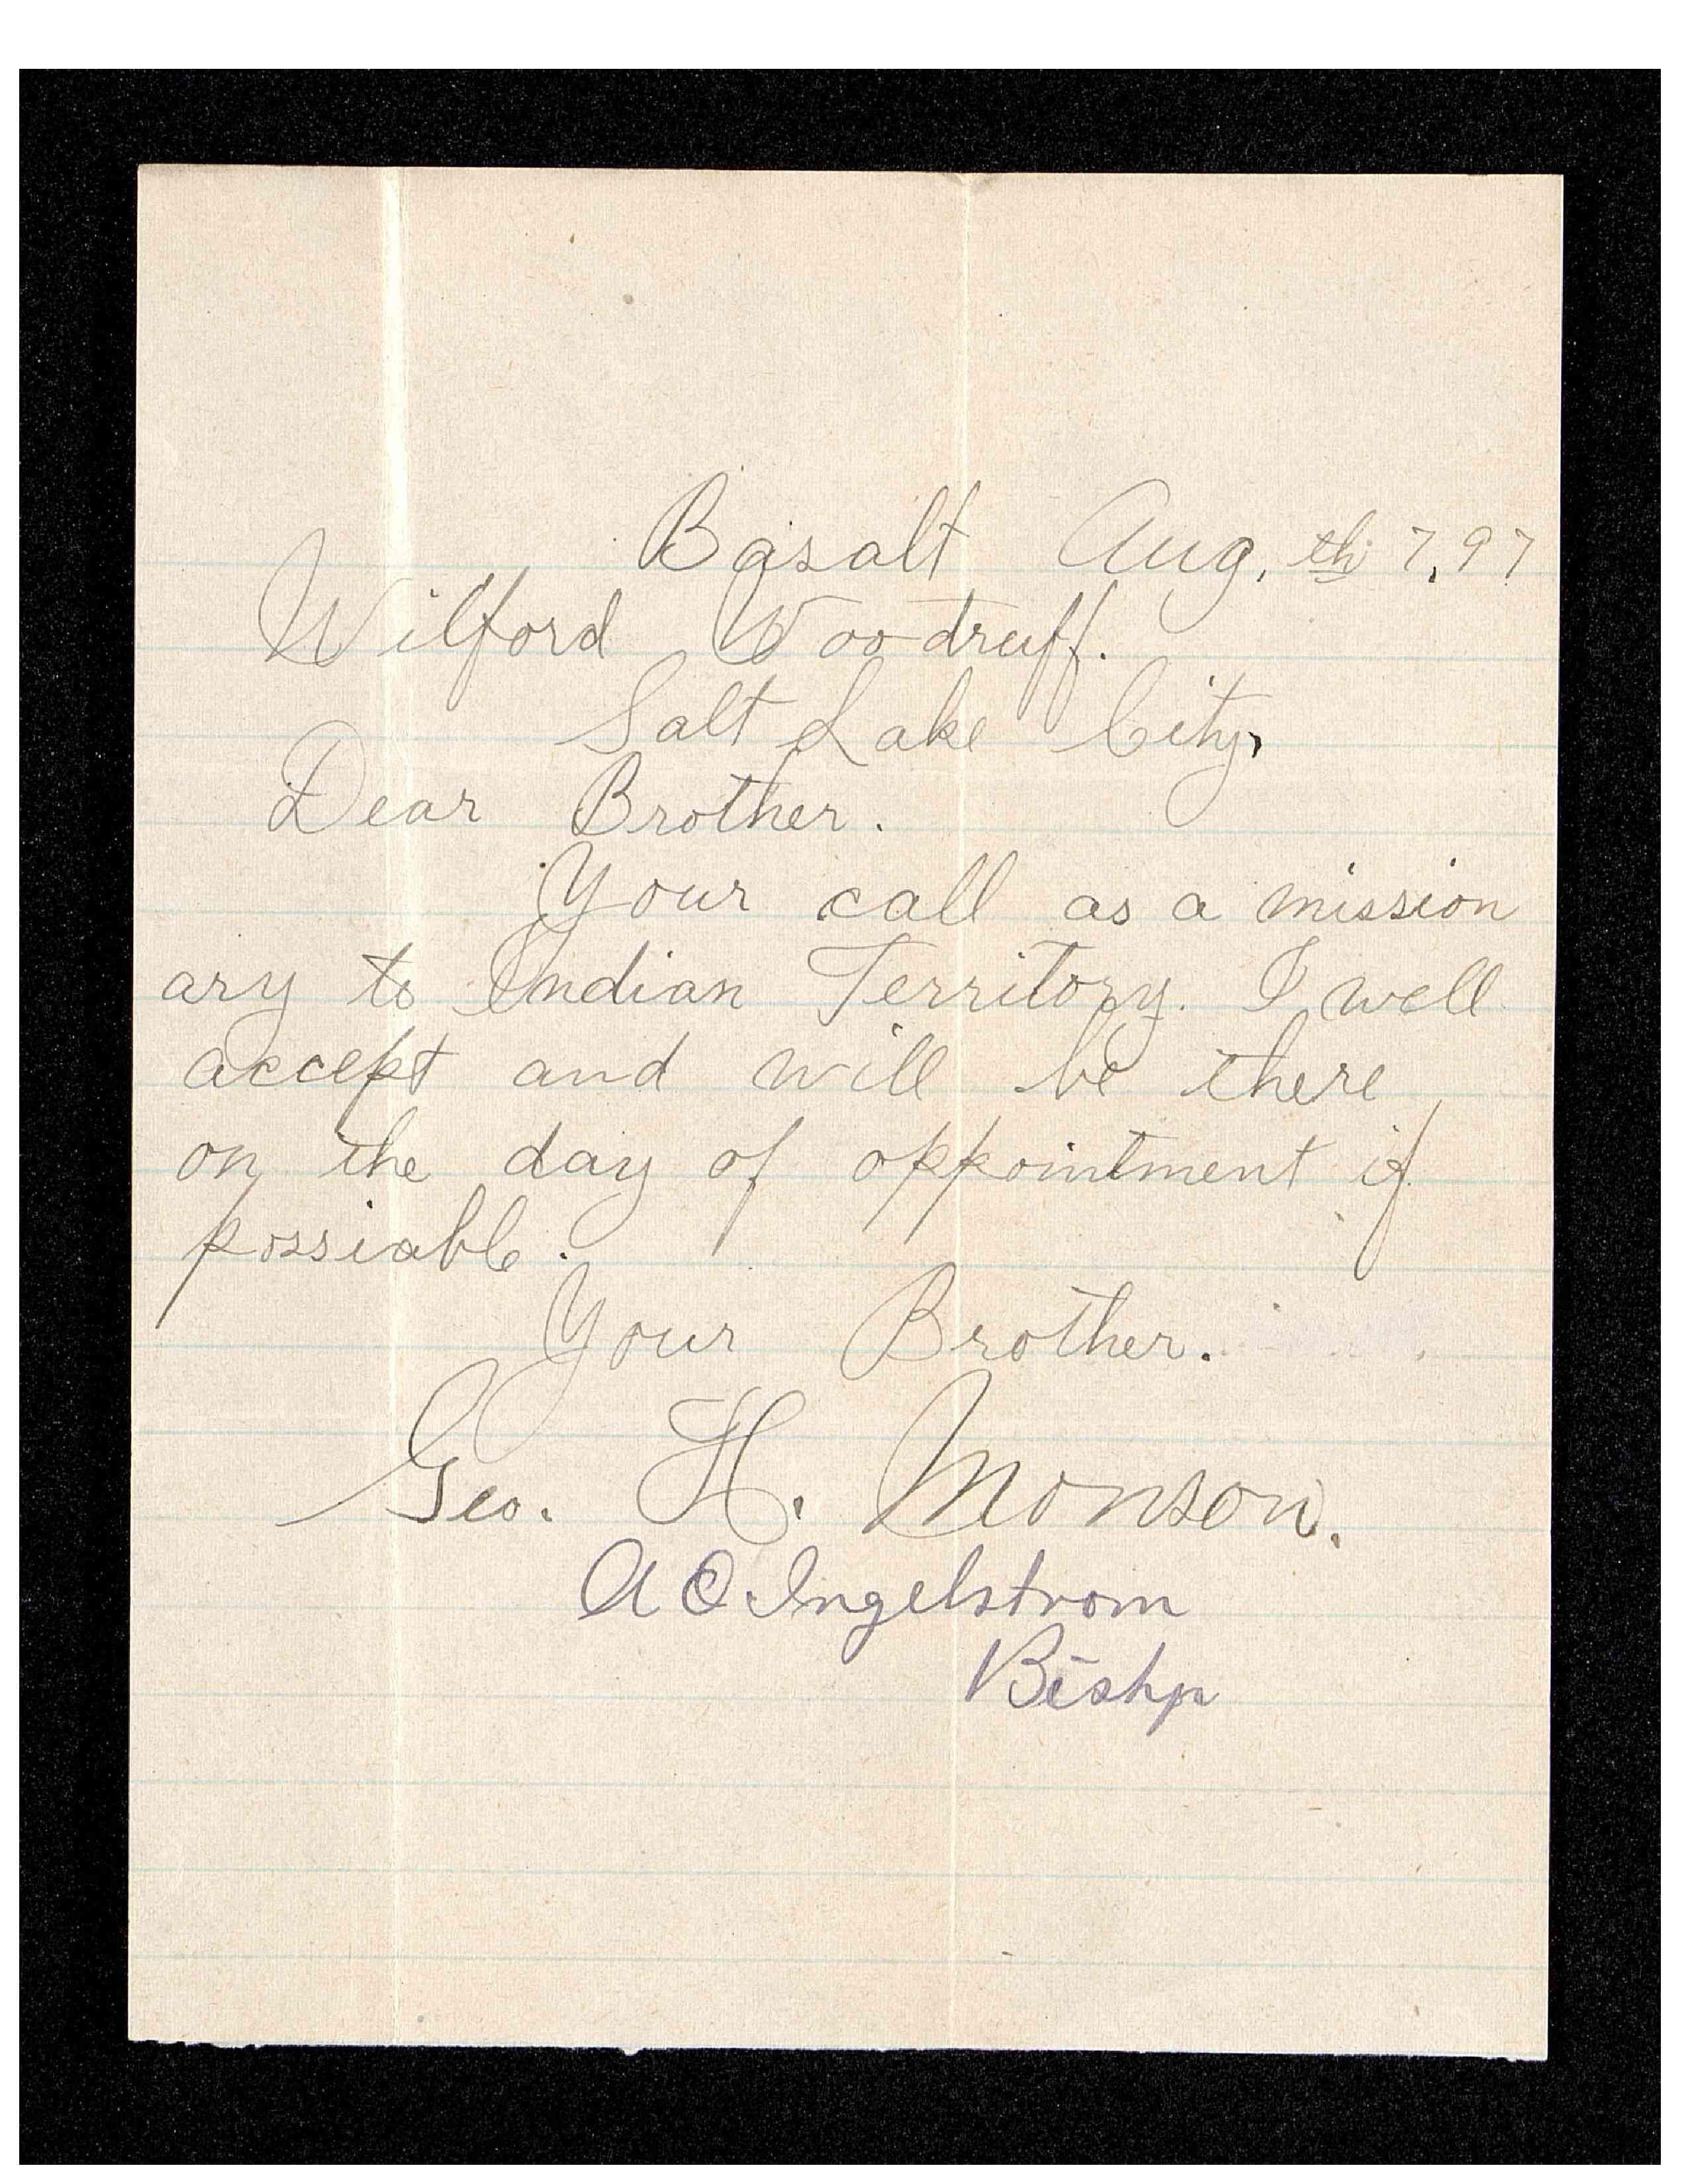 Basalt Aug. th 7, 97
Wilford Woodruff.
Salt Lake City,
Dear Brother.
Your call as a mission
ary to Indian Territory. I well
accept and will be there
on the day of appointment if
possiable.
Your Brother.
Geo. H. Monson.
A O Ingelstrom
Bishp